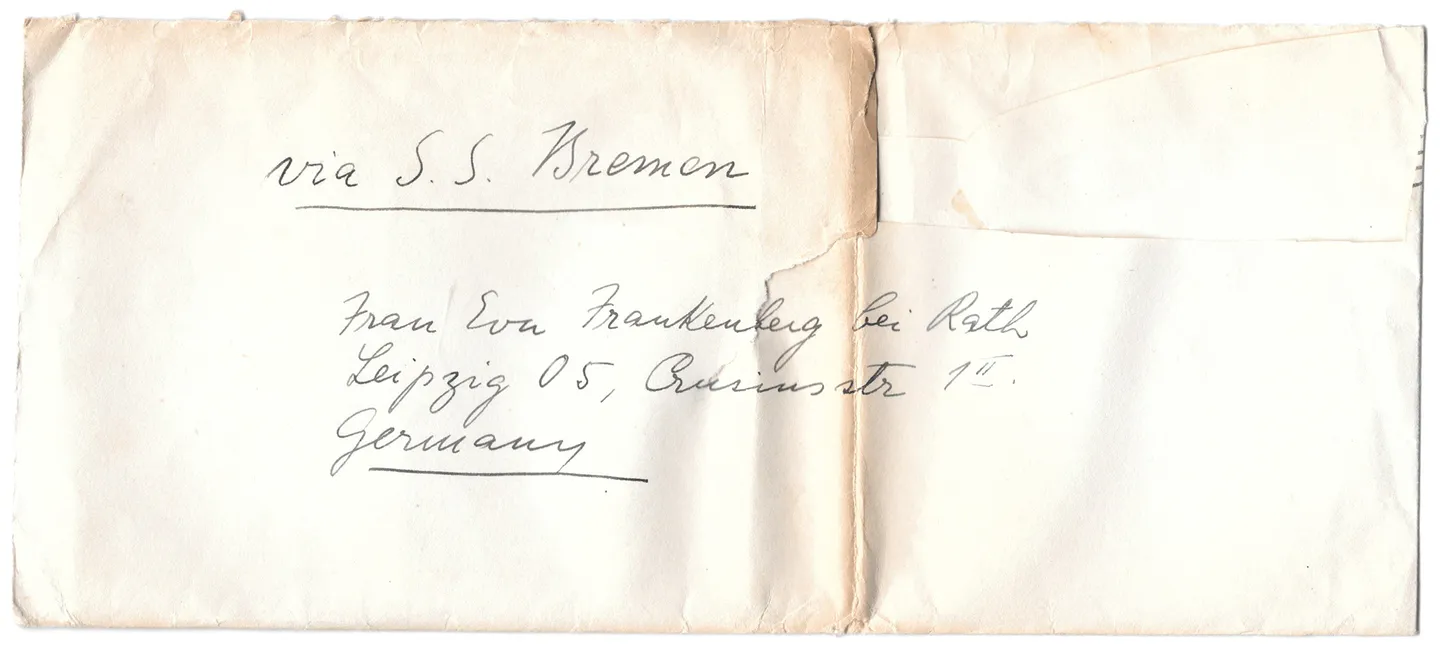 via S. S. Bremen
Frau Eva Frankenberg bei Rath
Leipzig O 5, Crusiusstr 1 II.
Germany